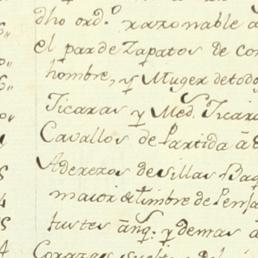 dho ord.º razonable a
el par de Zapatos de Cor
hombre, y Muger de todo
Ticaras y Med.s Ticara
Cavallos de Partida à
Aderezos de Sillas Baq
maior de timbre de Pensa
tustes ànq. y demas à
Corazas